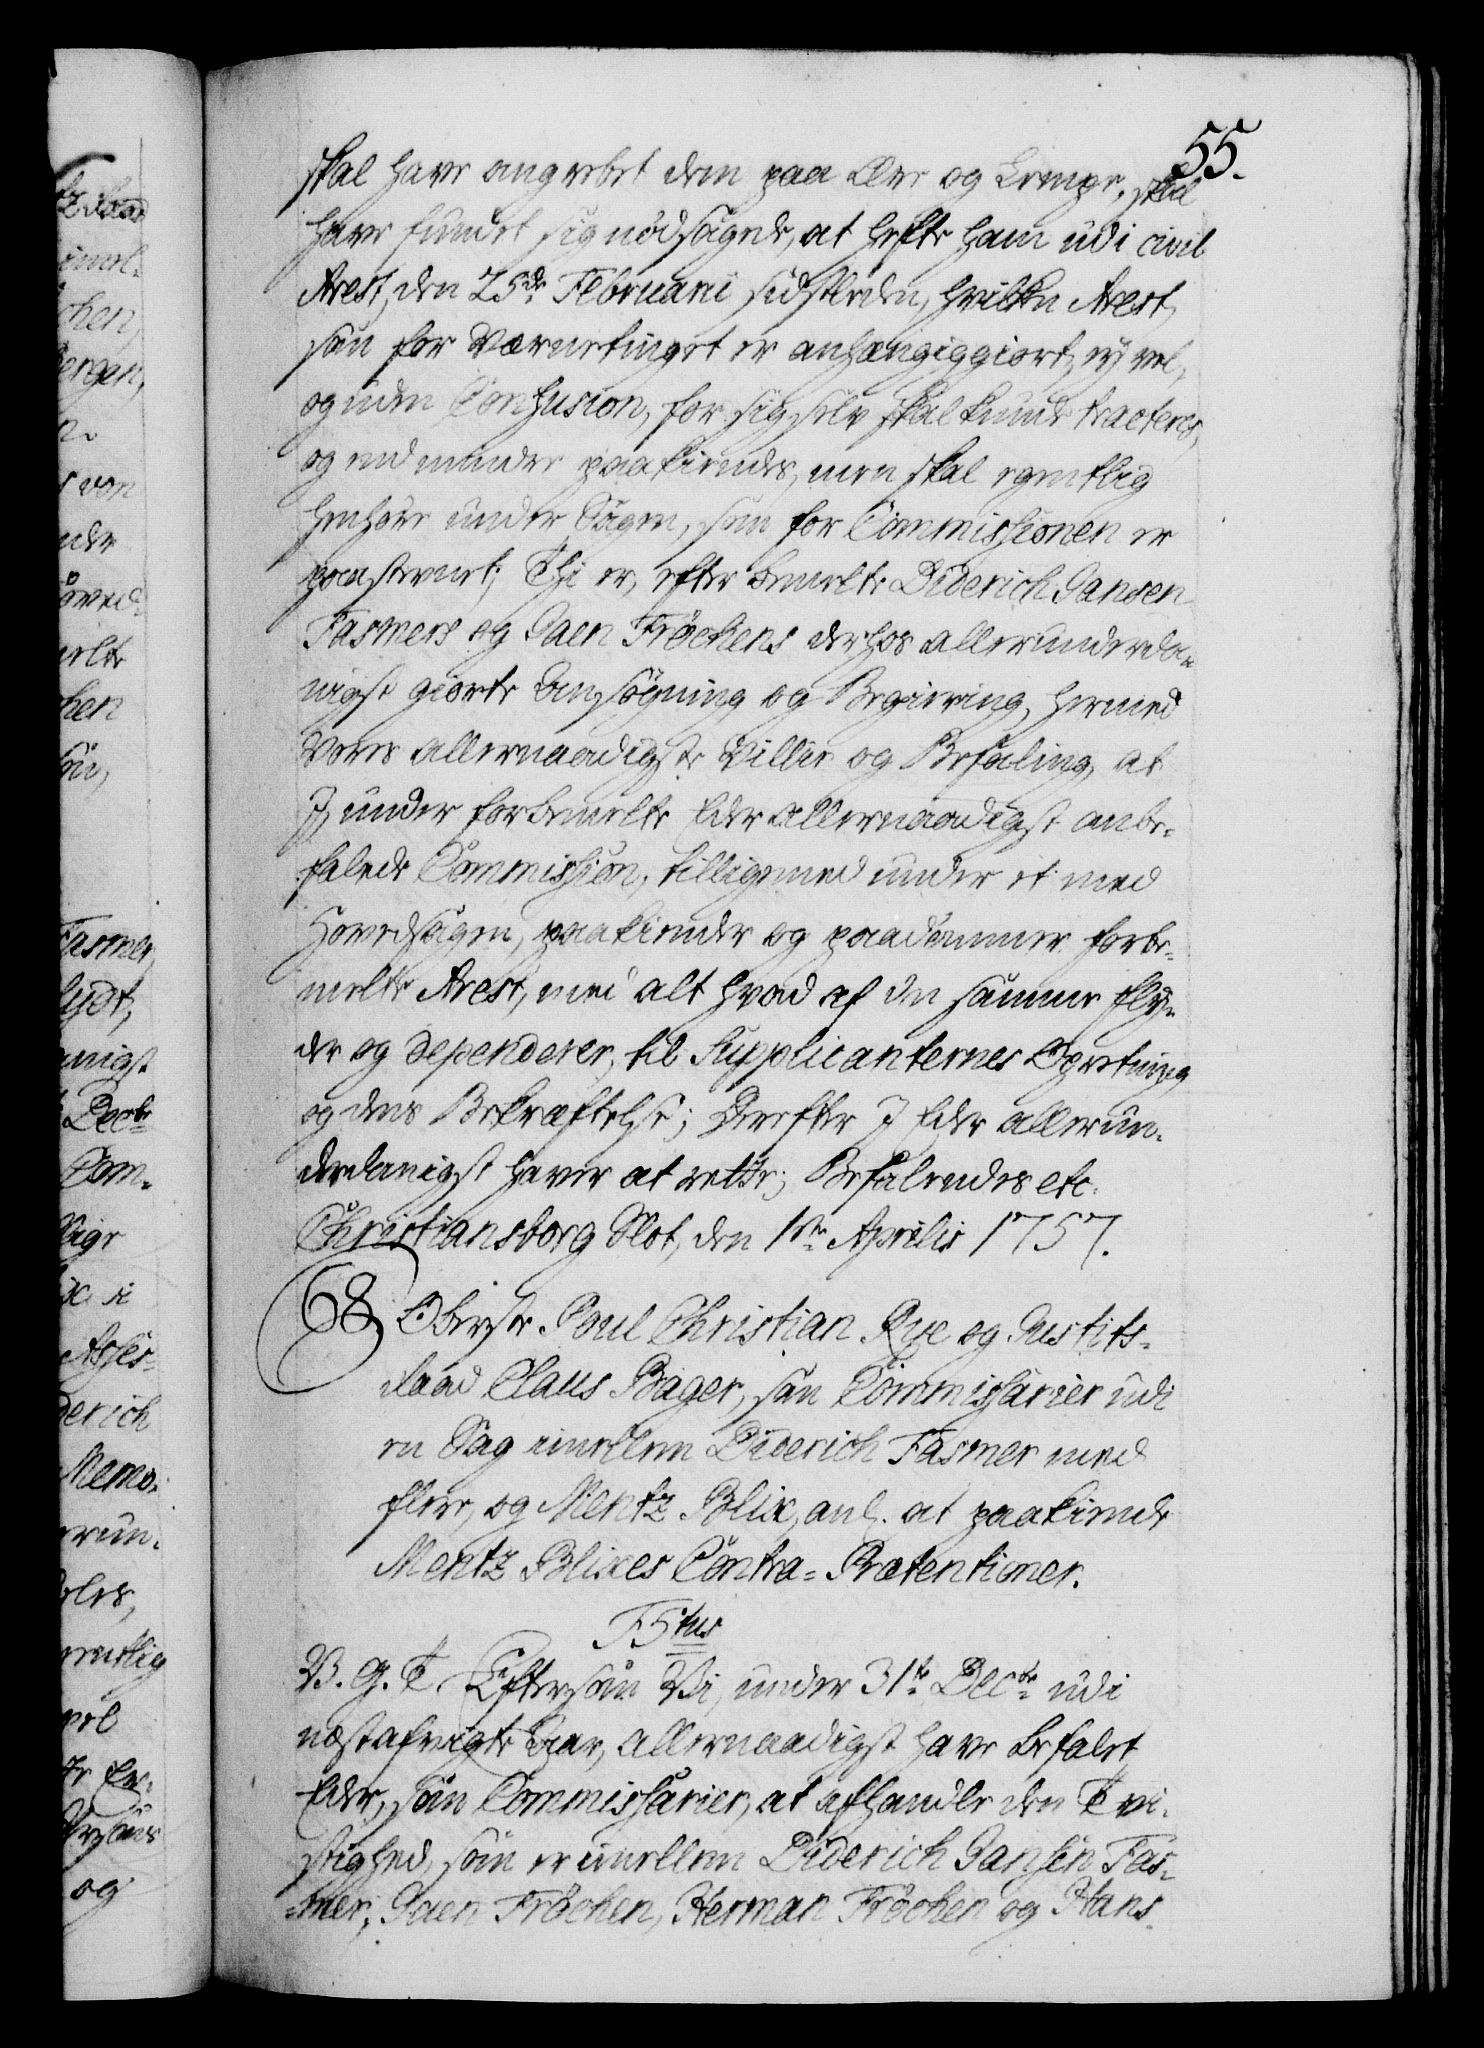 55.
skal have angrebet dem paa Ære og Lempe, skal
have fundet sig nødsagede, at hefte ham udi civil
Arest, den 25de Februarii sidstleden, hvilken Arest,
som for Værnetinget er anhængiggiort, ej vel,
og uden Confusion, for sig selv skal kunde tracteres,
og end mindre paakiendes, men skal egentlig
henhøre under Sagen, som for Commissionen er
paastevnet; Thi er, efter bemelte Diderich Jansen
Fasmers og Jaen Frøchens derhos allerunderda-
nigst giorte Ansøgning og Begiering, hermed
Vores allernaadigste Villie og Befaling, at
I, under forbemelte Eder allernaadigst anbe-
falede Commission, tilligemed under et med
Hovedsagen, paakiender og paadømmer forbe-
melte Arest, med alt hvad af den samme fly-
der og dependerer, til Supplicanternes Opretning,
og dens Bekræftelse; Derefter I Eder allerun-
derdanigst haver at rette; Befalendes etc.
Christiansborg Slot, den 1ste Aprilis 1757.
68 Oberste Poul Christian Rye og Justits-
Raad Claus Bager, som Commissarier udi
en Sag imellem Diderich Fasmer med
flere, og Mentz Blix, anl. at paakiende
Mentz Blixes Contra-Prætentioner.
F5tus
V. G. T. Eftersom Vi, under 31te Decbr udi
næstafvigte Aar, allernaadigst have befalet
Eder, som Commissarier, at afhandle den Tvi-
stighed, som er imellem Diderich Jansen Fas-
mer, Jaen Frøchen, Herman Frøchen og Hans